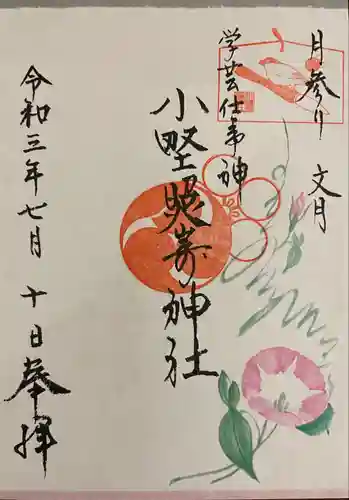 月参り 文月
学芸仕事神
小野照嵜神社
令和三年七月十日奉拝